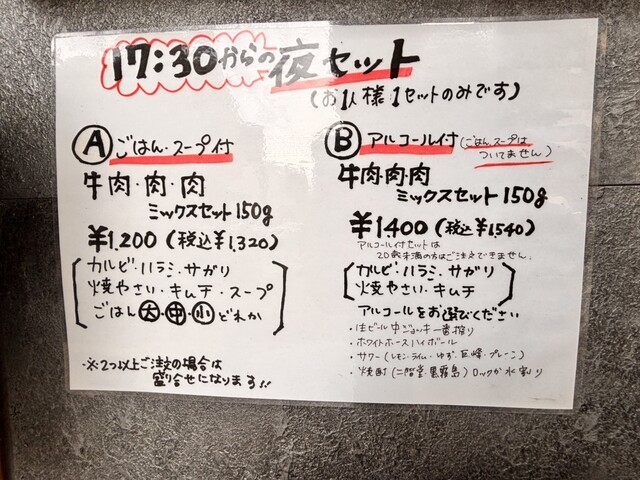 17:30からの夜セット
(お1人様1セットのみです)
Ⓐ ごはん・スープ付
牛肉・肉・肉
ミックスセット150g
¥1.200 (税込¥1.320)
カルビ・ハラミ・サガリ
焼やさい・キムチ・スープ
ごはん 大・中・小 どれか
・※2つ以上ご注文の場合は
盛り合せになります!!
Ⓑ アルコール付 (ごはん、スープは
ついてません)
牛肉・肉・肉
ミックスセット150g
¥1.400 (税込¥1.540)
アルコール付セットは
20歳未満の方はご注文できません。
カルビ・ハラミ・サガリ
焼やさい・キムチ
アルコールをお選びください
・生ビール中ジョッキ一番搾り
・ホワイトホースハイボール
・サワー(レモン・ライム・ゆず・巨峰・プレーン)
・焼酎(二階堂・黒霧島)ロックか水割り